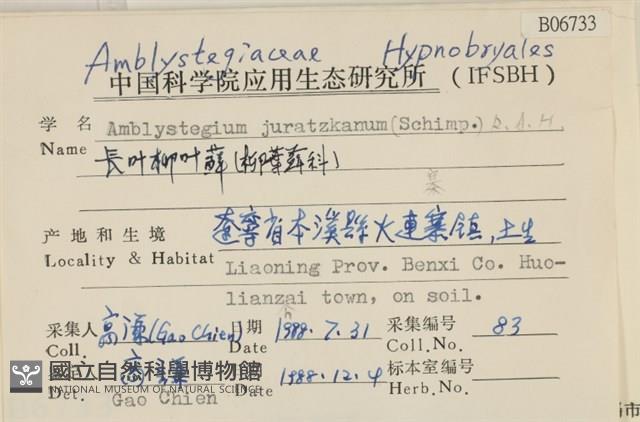 B06733
Amblystegiaceae Hypnobryales
中国科学院应用生态研究所 (IFSBH)
学 名 Amblystegium juratzkanum(Schimp.)
Name 長叶柳叶藓(柳葉藓科)
产 地 和 生 境 遼寧省本溪縣火連寨镇,土生
Locality & Habitat Liaoning Prov. Benxi Co. Huo-
lianzai town, on soil.
采集人 高谦(Gao Chien) 日期 1988.7.31 采集编号 83
Coll. Date Coll.No.
高谦 1988.12.4 标本室编号
Det. Gao Chien Date Herb.No.
國立自然科學博物館
NATIONAL MUSEUM OF NATURAL SCIENCE
市